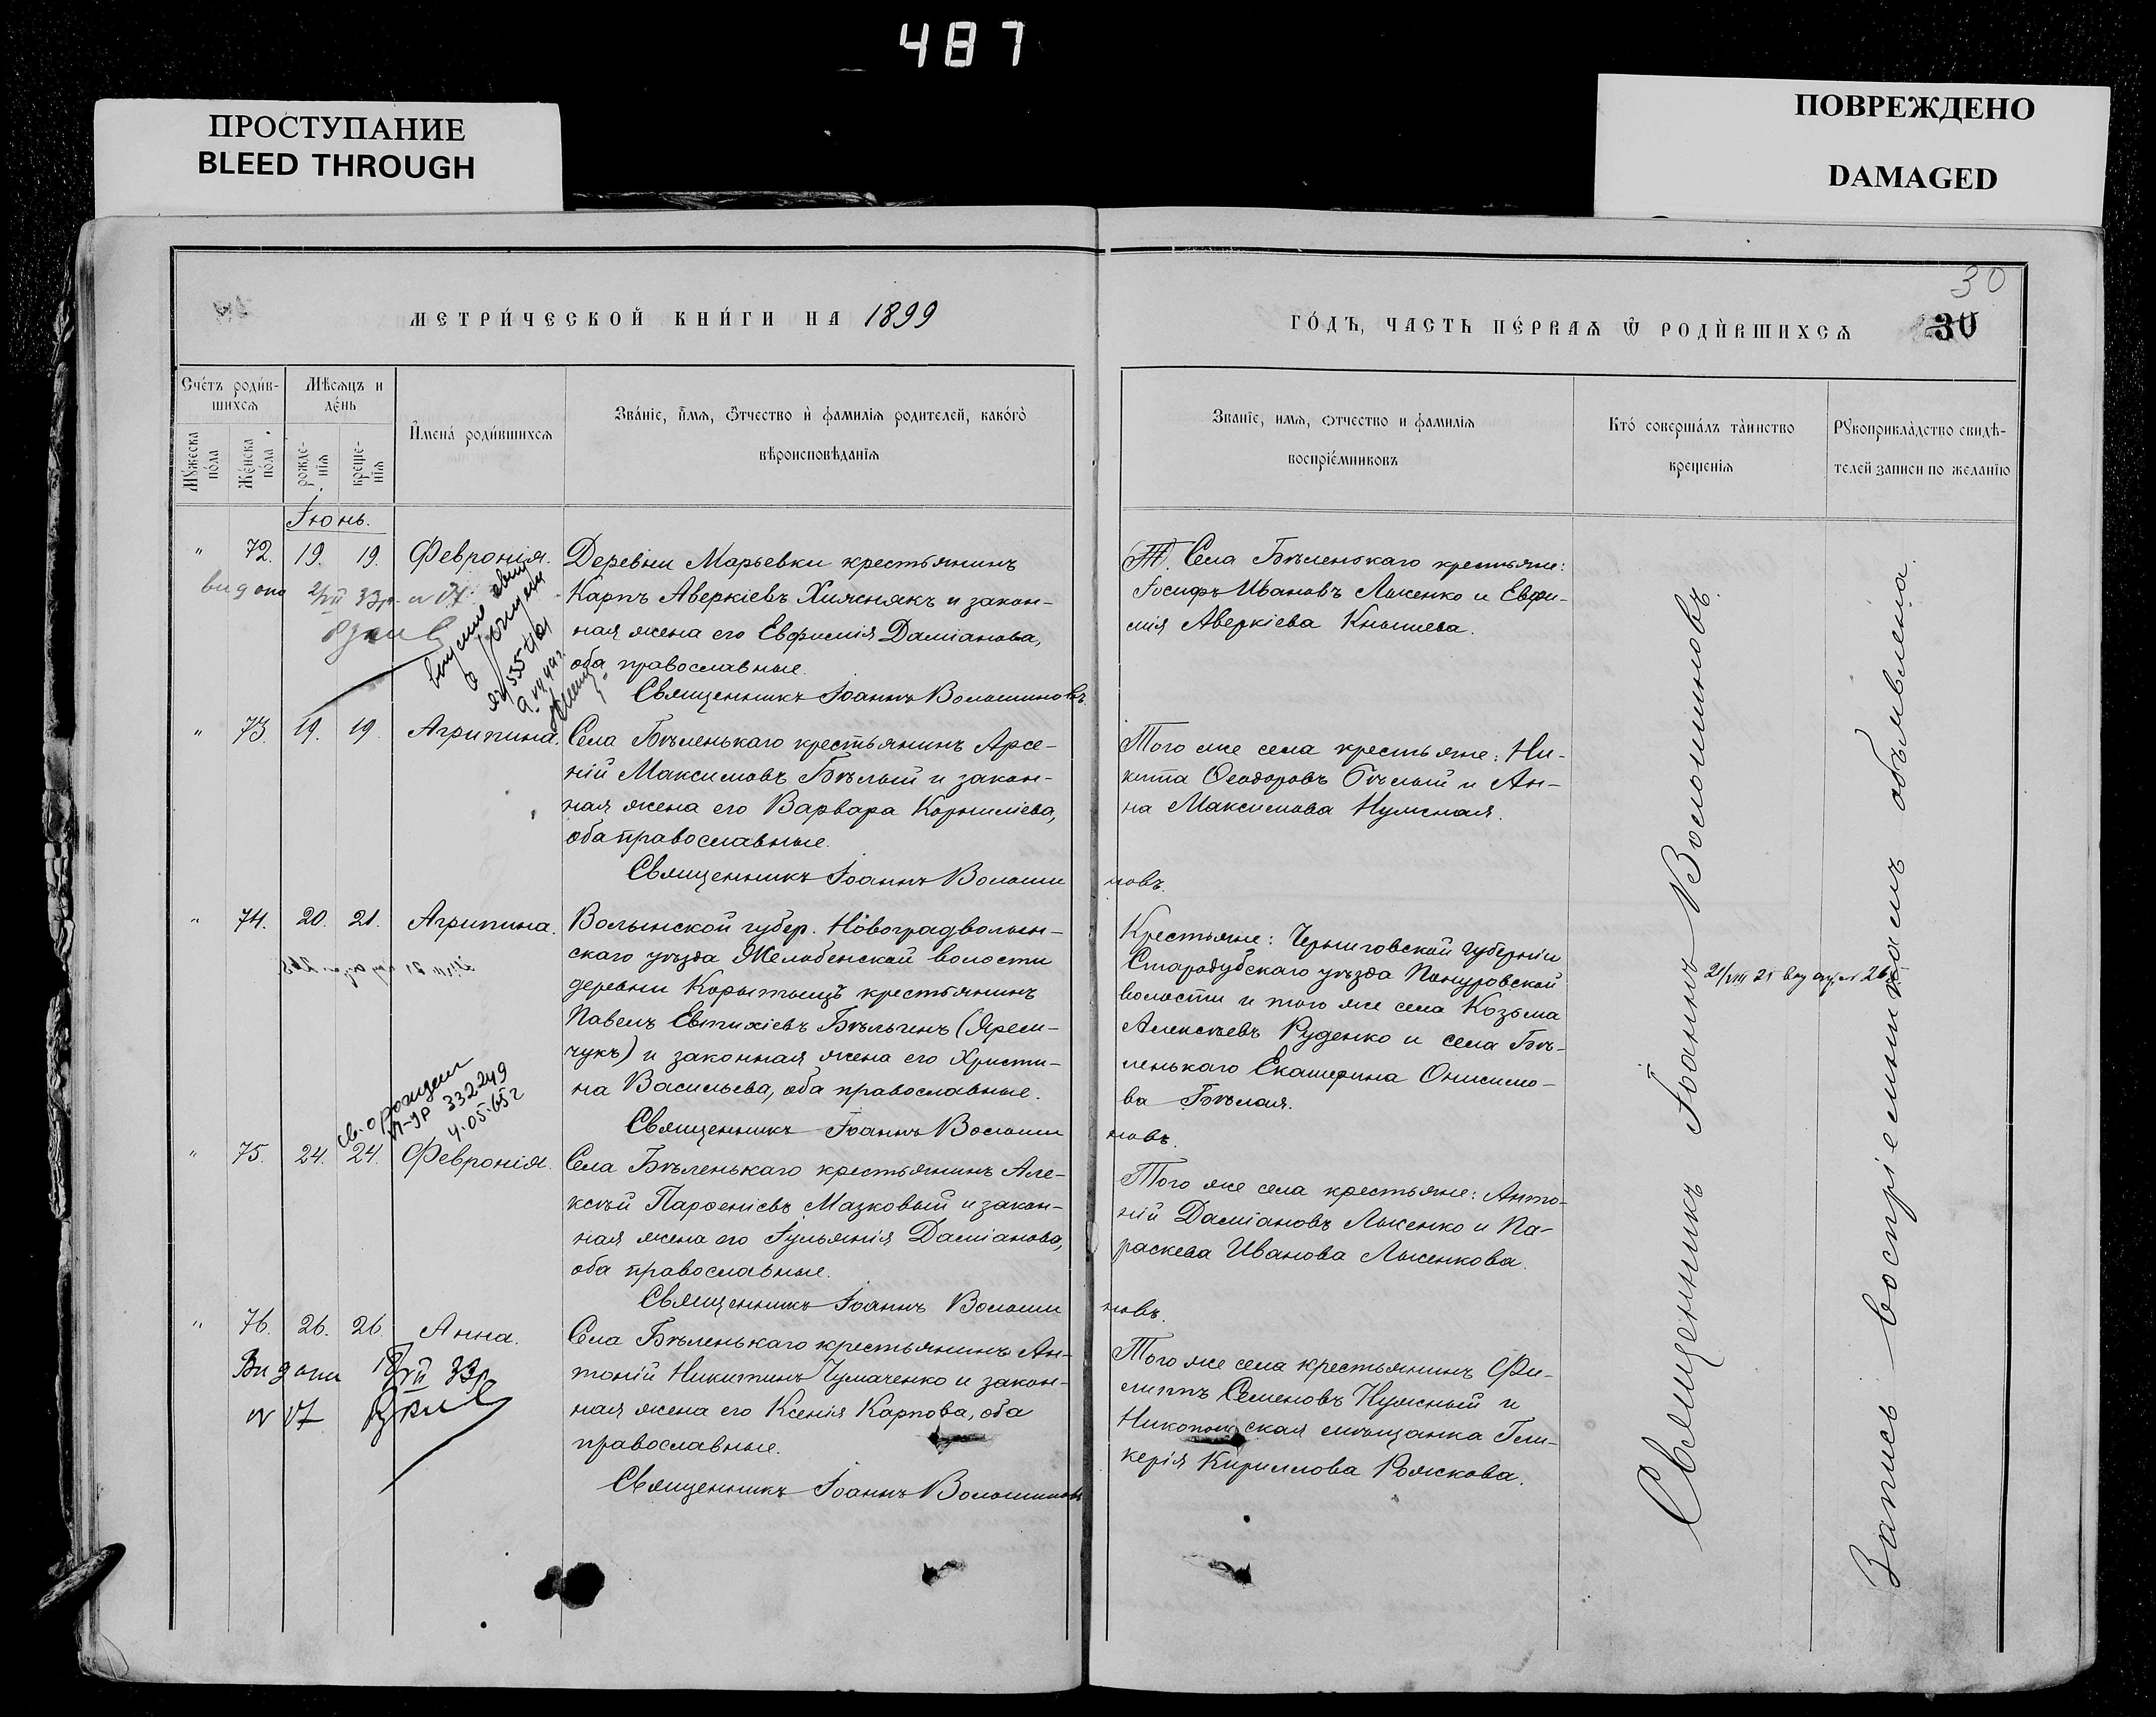 487
ПРОСТУПАНИЕ
BLEED THROUGH
ПОВРЕЖДЕНО
DAMAGED
30
МЕТРИ́ЧЕСКОЙ КНИ́ГИ НА 1899
ГО́ДЪ, ЧАСТЬ ПЕ́РВАѦ Ѿ РОДИ́ВШИХСѦ 30
Сче́тъ роди́в-
шихсѧ
Мѣ́сѧцъ и
де́нь
Мꙋ́жеска
по́ла
Же́нска
по́ла
рожде-
нїѧ
креще-
нїѧ
И҆мена́ роди́вшихсѧ
Зва́нїе, и҆́мѧ, ѻ҆́тчество и҆ фами́лїѧ роди́телей, како́гѡ
вѣроисповѣ́данїѧ
Зва́нїе, имѧ, ѻтчество и фами́лїѧ
воспрїе́мниковъ
Кто́ соверша́лъ та́инство
креще́нїѧ
Рꙋкоприкла́дство свидѣ́-
телей записи по жела́нїю
Іюнь.
" 72. 19. 19. Февронія.
Деревни Марьевки крестьянинъ
Карпъ Аверкіевъ Хижнякъ и закон-
ная жена его Евфимія Даміанова,
оба православные.
Священникъ Іоаннъ Волошиновъ.
Села Бѣленькаго крестьяне:
Іосифъ Ивановъ Лысенко и Евфи-
мія Аверкіева Кнышева.
" 73. 19. 19. Агрипина.
Села Бѣленькаго крестьянинъ Арсе-
ній Максимовъ Бѣлый и закон-
ная жена его Варвара Корниліева,
оба православные.
Священникъ Іоаннъ Волошиновъ.
Того же села крестьяне: Ни-
кита Ѳеодоровъ Бѣлый и Ан-
на Максимова Нужная.
" 74. 20. 21. Агрипина.
Волынской губер. Новоградволын-
скаго уѣзда Жолобенской волости
деревни Корытыщъ крестьянинъ
Павелъ Евтихіевъ Бѣльчичъ (Ярем-
чукъ) и законная жена его Христи-
на Васильева, оба православные.
Священникъ Іоаннъ Волошиновъ.
Крестьяне: Черниговской губерніи
Стародубскаго уѣзда Понуровской
волости и того же села Козьма
Алексѣевъ Руденко и села Бѣ-
ленькаго Екатерина Онисимо-
ва Бѣлая.
св. о рождении
332249
4.05.65г
" 75. 24. 24. Февронія.
Села Бѣленькаго крестьянинъ Але-
ксѣй Парѳеніевъ Мазковый и закон-
ная жена его Іульянія Даміанова,
оба православные.
Священникъ Іоаннъ Волошиновъ.
Того же села крестьяне: Анто-
ній Даміановъ Лысенко и Па-
раскева Иванова Лысенкова.
" 76. 26. 26. Анна.
Села Бѣленькаго крестьянинъ Ан-
тоній Никитинъ Чумаченко и закон-
ная жена его Ксенія Карпова, оба
православные.
Священникъ Іоаннъ Волошиновъ
Того же села крестьянинъ Фи-
липпъ Семеновъ Нужный и
Никопольская мѣщанка Гли-
керія Кириллова Рожкова.
Священникъ Іоаннъ Волошиновъ.
Запись воспріемникамъ объявлена.